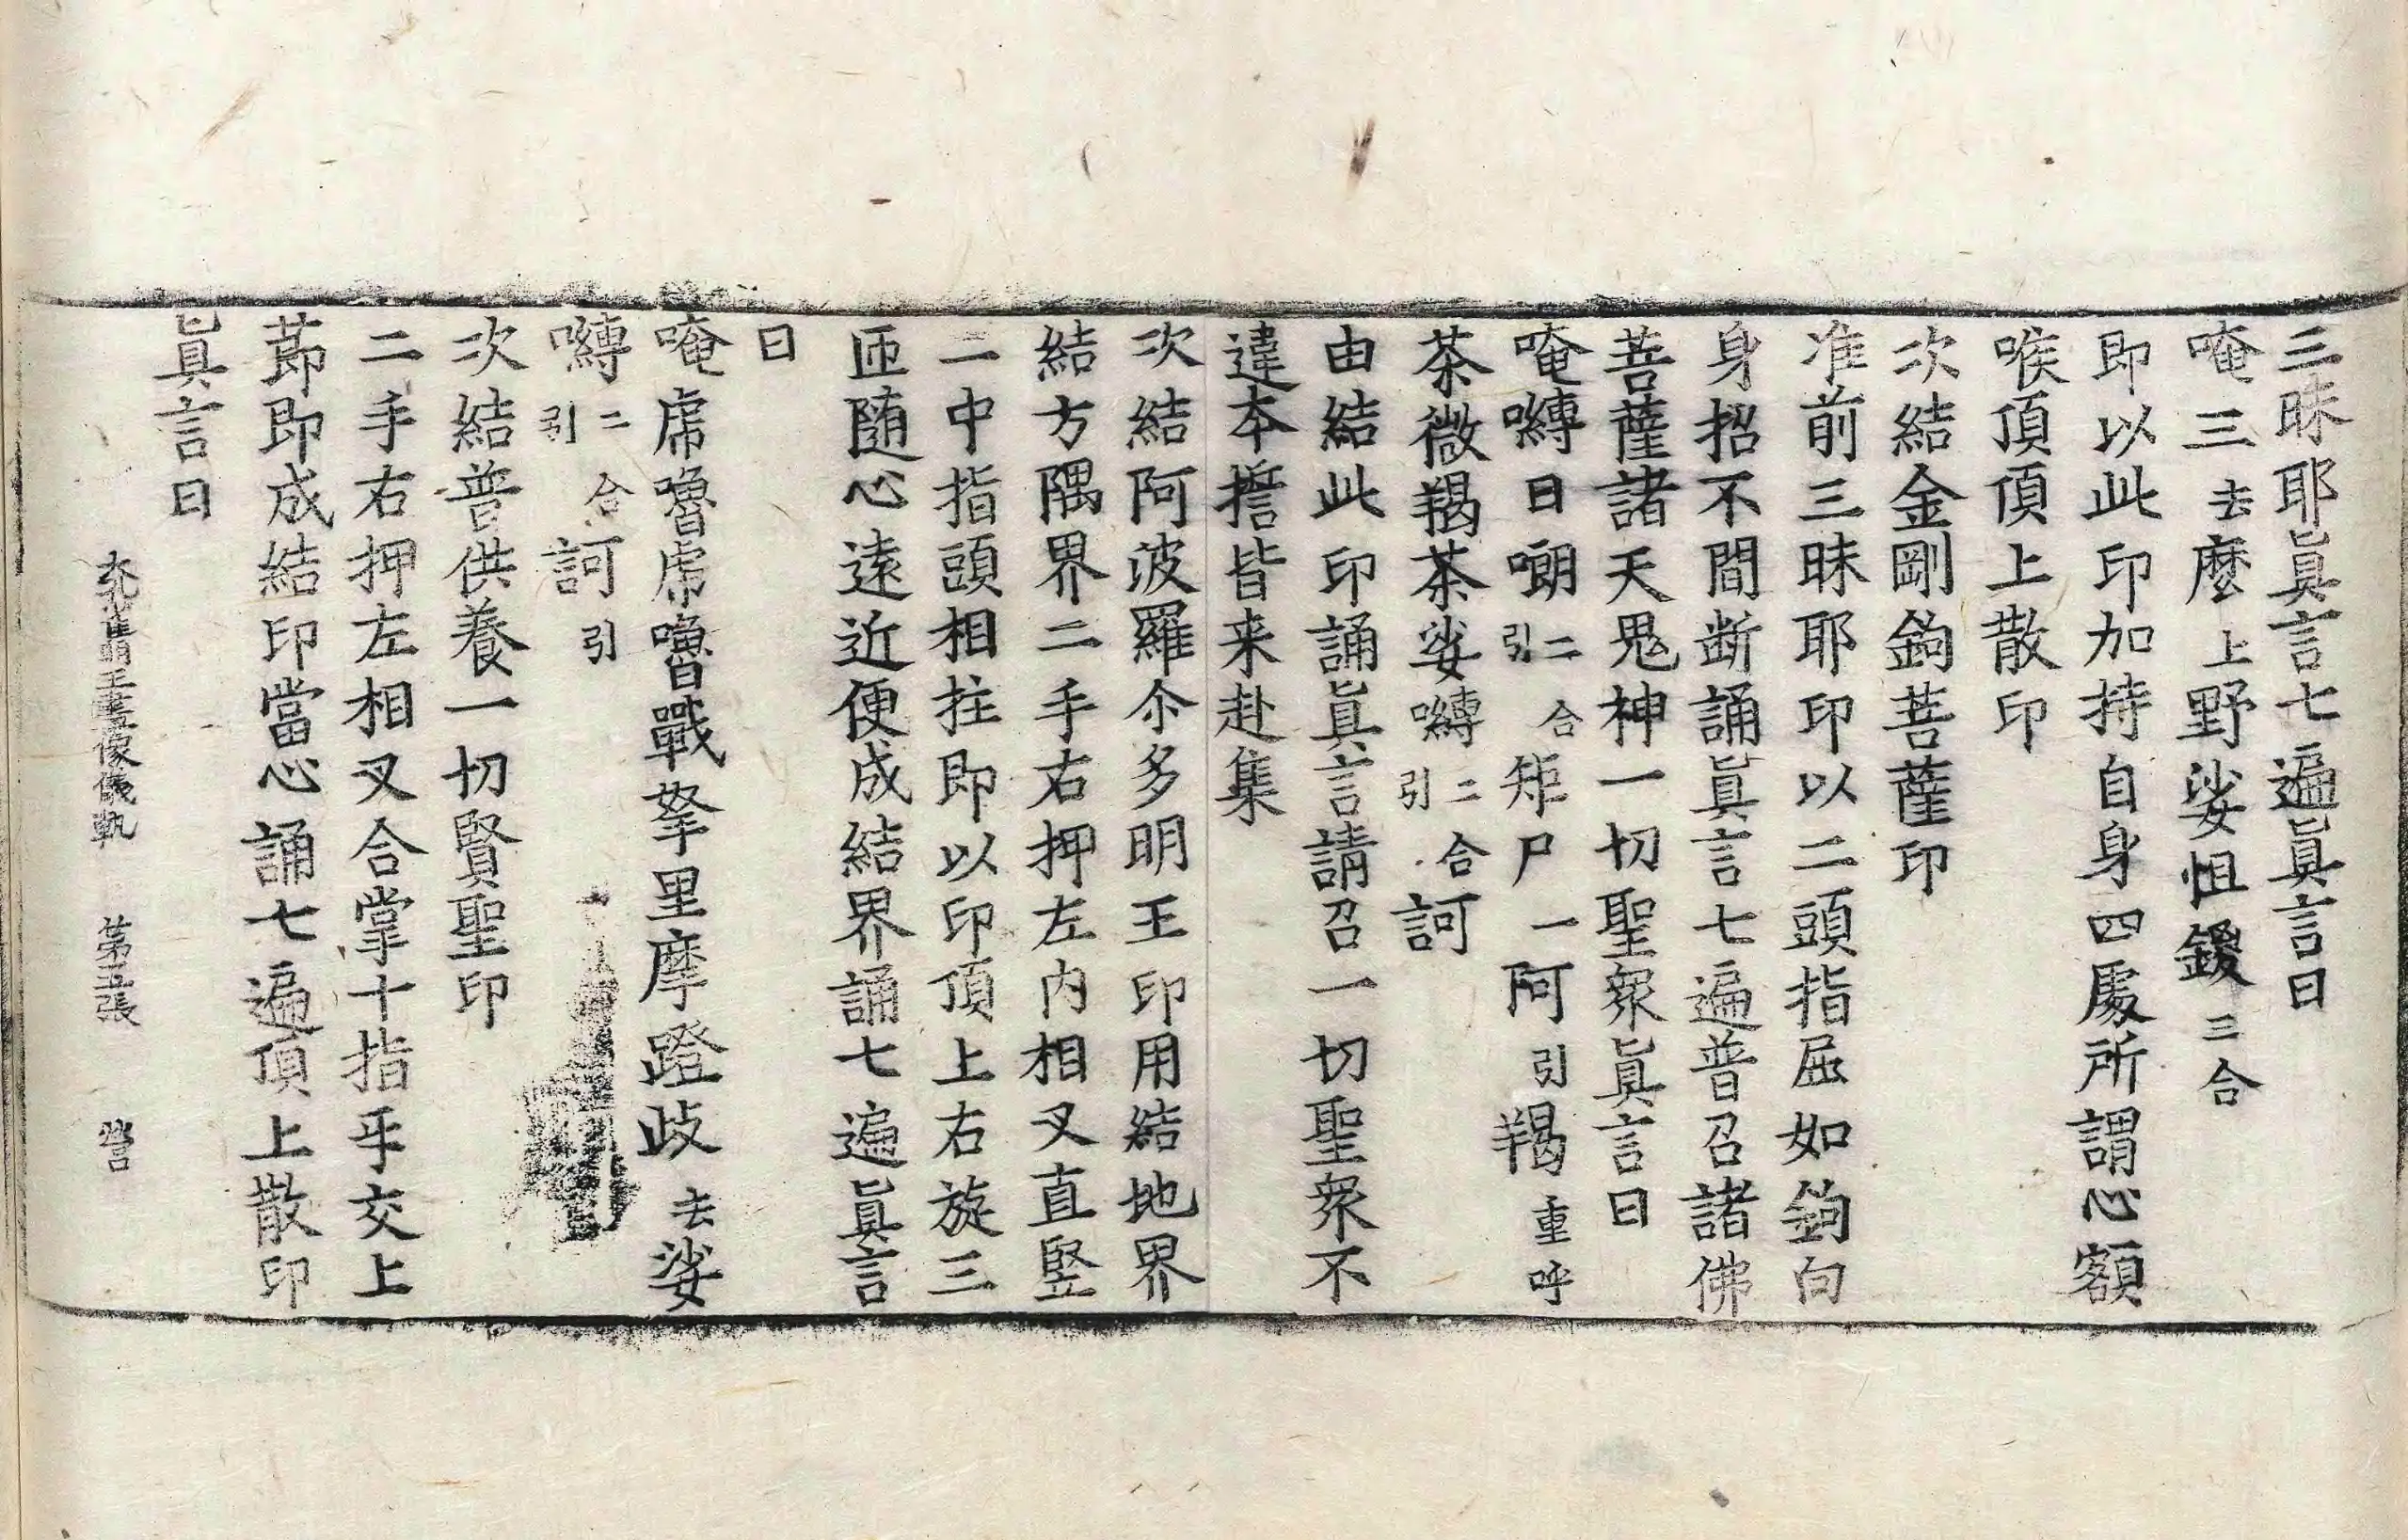 三昧耶眞言七遍眞言曰
唵三去麽上野娑怛鑁三合
即以此印加持自身四處所謂心額
喉頂頂上散印
次結金剛鉤菩薩印
准前三昧耶印以二頭指屈如鉤向
身招不間断誦眞言七遍普召諸佛
菩薩諸天鬼神一切聖衆眞言曰
唵嚩日囉二合引矩尸一阿引羯重呼
茶微羯茶娑嚩二合引訶
由結此印誦眞言請召一切聖衆不
違本誓皆来赴集
次結阿波羅尒多明王印用結地界
結方隅界二手右押左内相叉直竪
二中指頭相拄即以印頂上右旋三
匝随心遠近便成結界誦七遍眞言
曰
唵虎嚕虎嚕戰拏里摩蹬歧去娑
嚩二合引訶引
次結普供養一切賢聖印
二手右押左相叉合掌十指乎交上
莭即成結印當心誦七遍頂上散印
眞言曰
儀軌 第五張